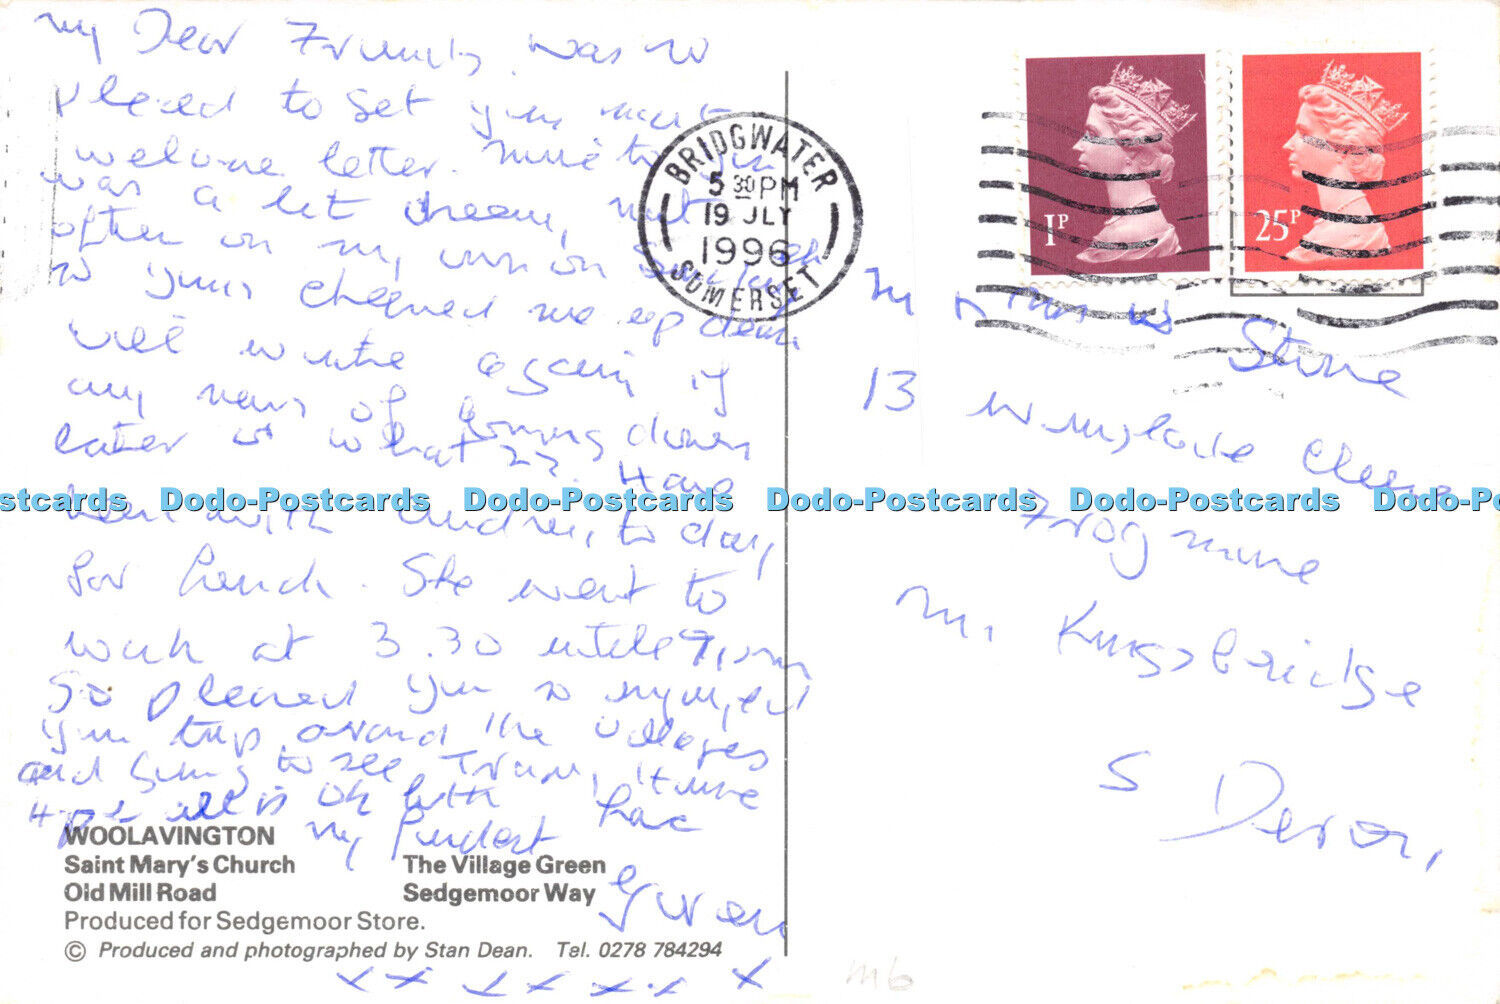 my Dear Friends, was so
pleased to get your most
welcome letter. mine to you
was a bit dreary, not
often on my own on Sunday
so yours cheered me up dear.
will write again if
any news of coming down
later is what ??. Have
been with Andrew, to day,
for Lunch. She went to
work at 3.30 until 9.
So pleased you so enjoyed
your trip around the villages
and going to see
Hope all is ok with
my fondest love
Gwen
x x x x x x x
BRIDGWATER
5 30 PM
19 JLY
1996
SOMERSET
1P
25P
Stone
13 Winslade Close
Frogmore
Nr Kingsbridge
S Devon,
Dodo-Postcards Dodo-Postcards Dodo-Postcards Dodo-Postcards Dodo-Po
WOOLAVINGTON
Saint Mary's Church The Village Green
Old Mill Road Sedgemoor Way
Produced for Sedgemoor Store.
© Produced and photographed by Stan Dean. Tel. 0278 784294
m6